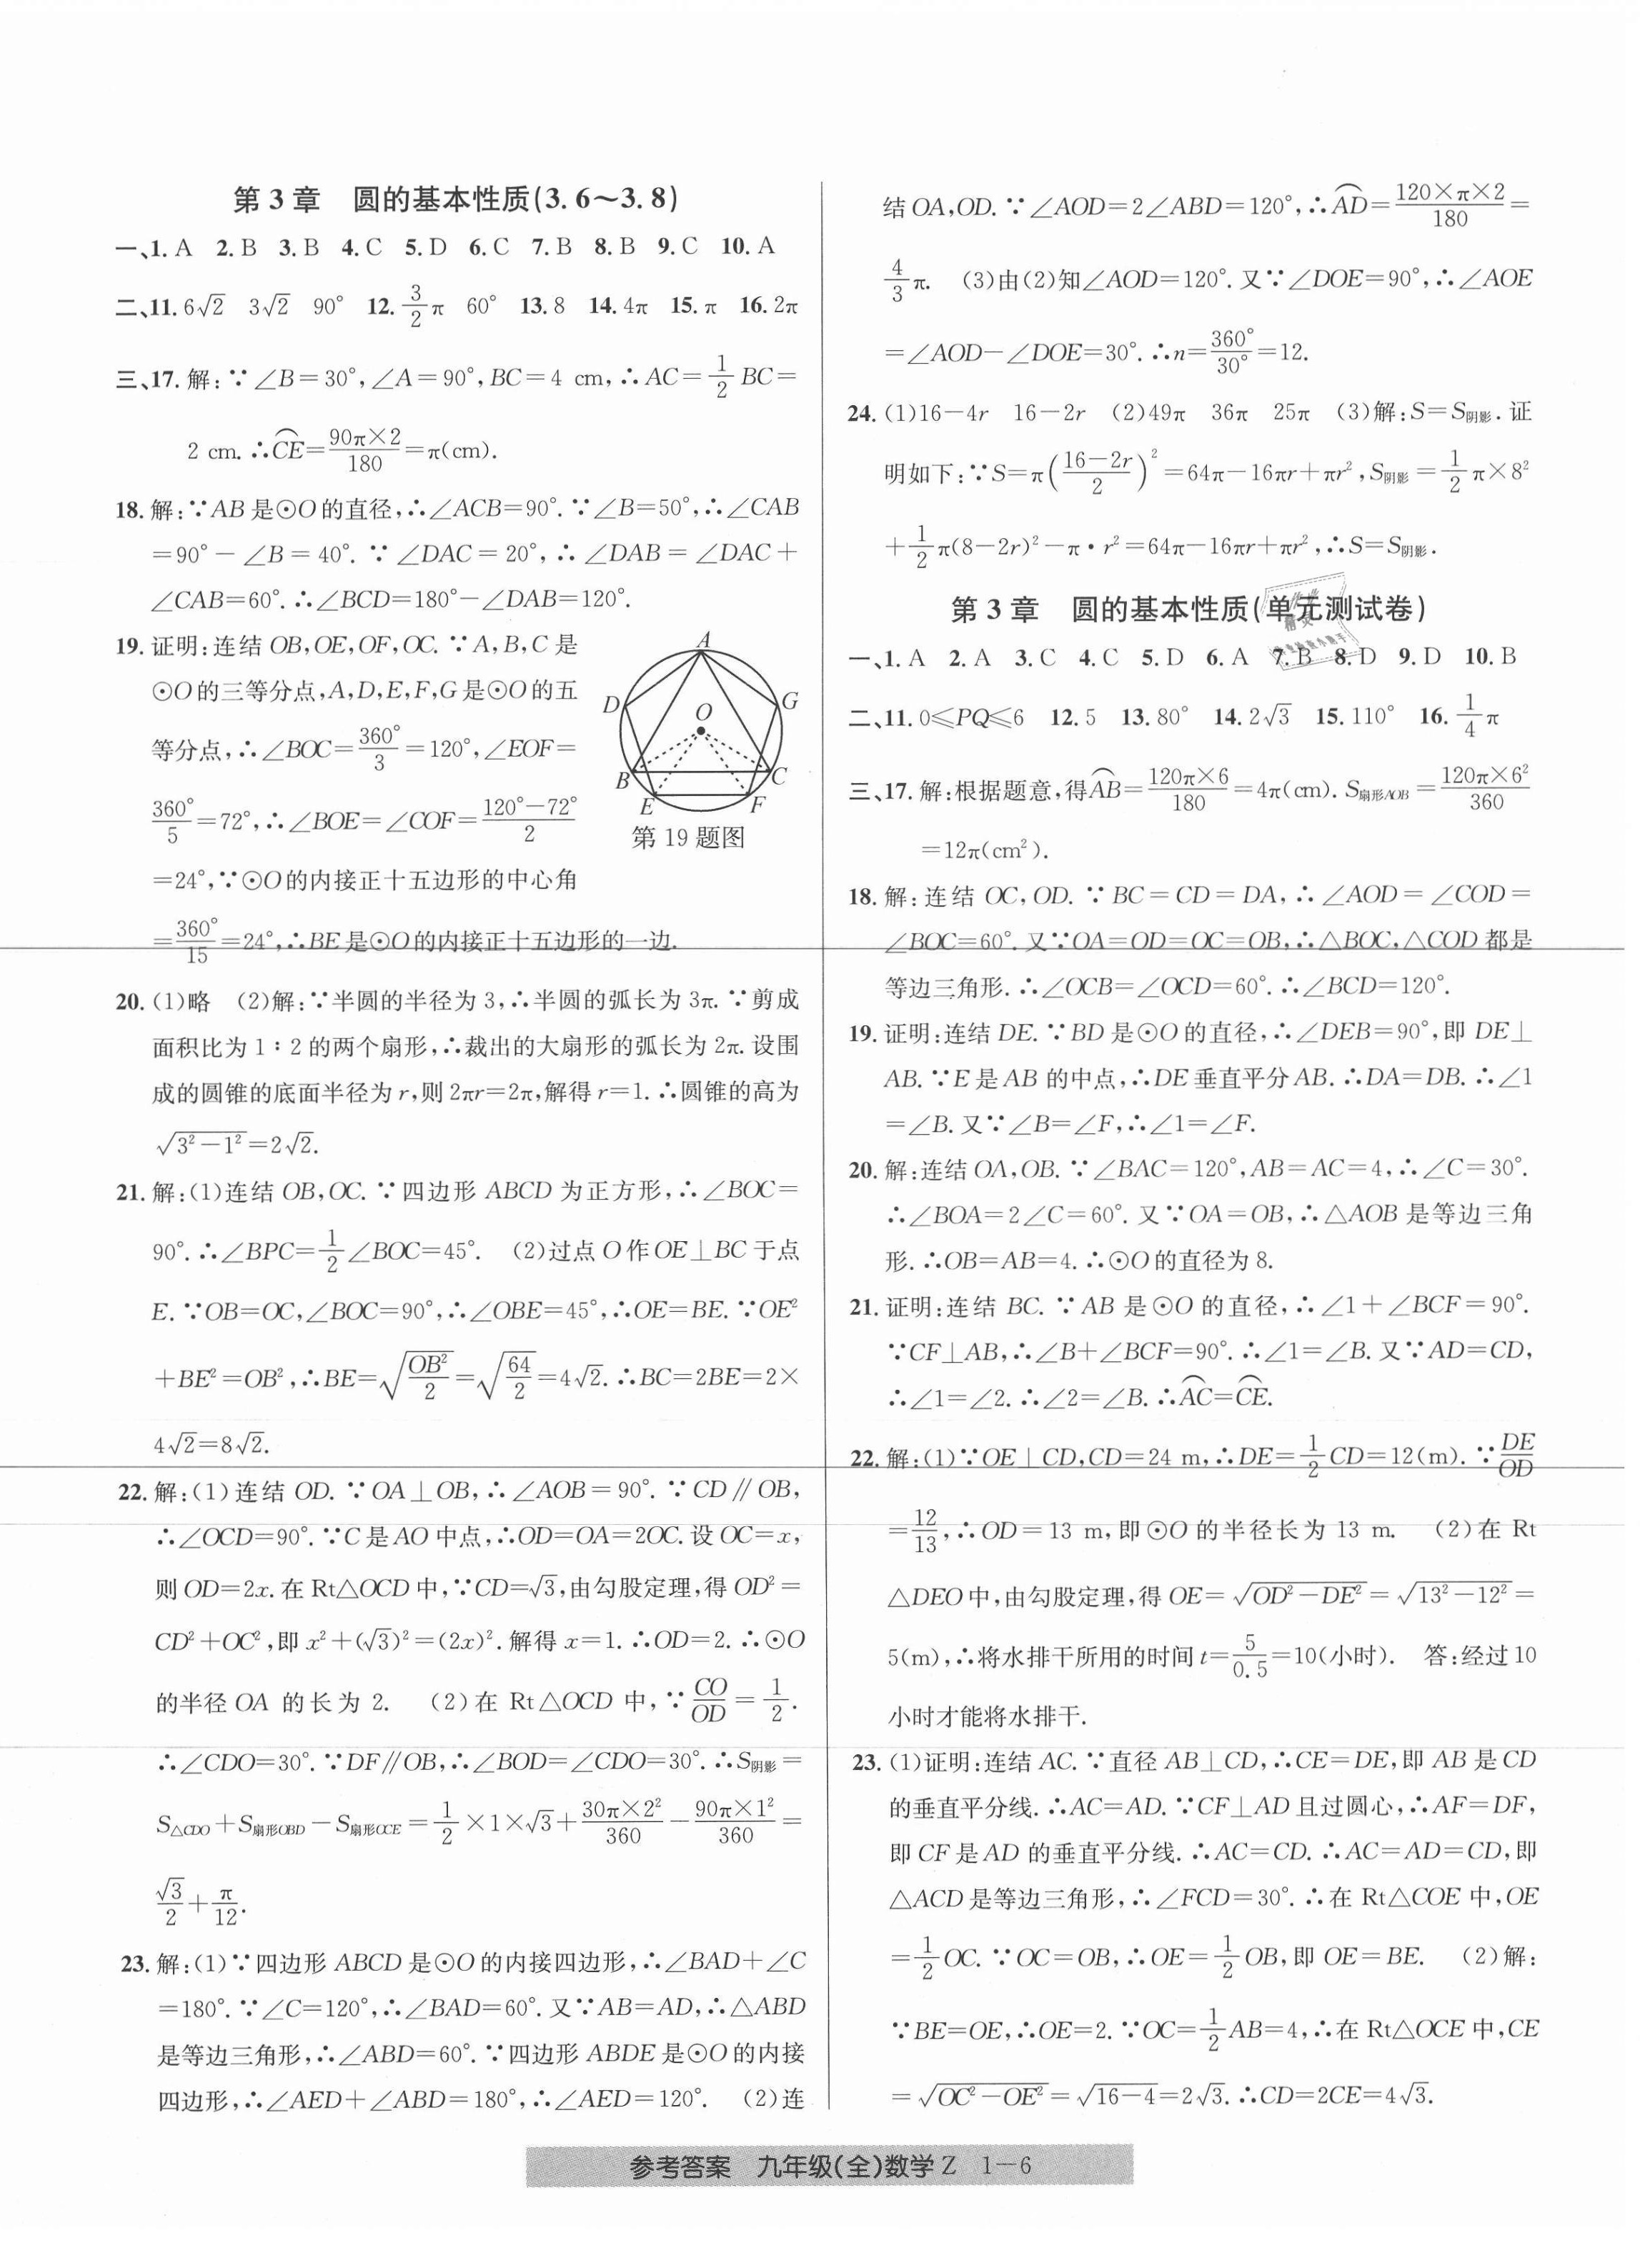 第3章 圆的基本性质(3.6～3.8)
一、1. A 2. B 3. B 4. C 5. D 6. C 7. B 8. B 9. C 10. A
二、11. 6√2 3√2 90° 12. 3/2 π 60° 13. 8 14. 4π 15. π 16. 2π
三、17. 解:∵∠B=30°,∠A=90°,BC=4 cm,∴AC=1/2 BC=
2 cm. ∴⌒CE=90π×2/180=π(cm).
18. 解:∵AB是⊙O的直径,∴∠ACB=90°. ∵∠B=50°,∴∠CAB
=90°-∠B=40°. ∵∠DAC=20°,∴∠DAB=∠DAC+
∠CAB=60°. ∴∠BCD=180°-∠DAB=120°.
19. 证明:连结OB,OE,OF,OC. ∵A,B,C是
⊙O的三等分点,A,D,E,F,G是⊙O的五
等分点,∴∠BOC=360°/3=120°,∠EOF=
360°/5=72°,∴∠BOE=∠COF=(120°-72°)/2
=24°,∵⊙O的内接正十五边形的中心角
=360°/15=24°,∴BE是⊙O的内接正十五边形的一边.
A
D
G
O
B
C
E
F
第19题图
20. (1)略 (2)解:∵半圆的半径为3,∴半圆的弧长为3π. ∵剪成
面积比为1∶2的两个扇形,∴裁出的大扇形的弧长为2π. 设围
成的圆锥的底面半径为r,则2πr=2π,解得r=1. ∴圆锥的高为
√(3²-1²)=2√2.
21. 解:(1)连结OB,OC. ∵四边形ABCD为正方形,∴∠BOC=
90°. ∴∠BPC=1/2∠BOC=45°. (2)过点O作OE⊥BC于点
E. ∵OB=OC,∠BOC=90°,∴∠OBE=45°,∴OE=BE. ∵OE²
+BE²=OB²,∴BE=√(OB²/2)=√(64/2)=4√2. ∴BC=2BE=2×
4√2=8√2.
22. 解:(1)连结OD. ∵OA⊥OB,∴∠AOB=90°. ∵CD∥OB,
∴∠OCD=90°. ∵C是AO中点,∴OD=OA=2OC. 设OC=x,
则OD=2x. 在Rt△OCD中,∵CD=√3,由勾股定理,得OD²=
CD²+OC²,即x²+(√3)²=(2x)². 解得x=1. ∴OD=2. ∴⊙O
的半径OA的长为2. (2)在Rt△OCD中,∵CO/OD=1/2.
∴∠CDO=30°. ∵DF∥OB,∴∠BOD=∠CDO=30°. ∴S阴影=
S△CDO+S扇形OBD-S扇形OCE=1/2×1×√3+30π×2²/360-90π×1²/360=
√3/2+π/12.
23. 解:(1)∵四边形ABCD是⊙O的内接四边形,∴∠BAD+∠C
=180°. ∵∠C=120°,∴∠BAD=60°. 又∵AB=AD,∴△ABD
是等边三角形,∴∠ABD=60°. ∵四边形ABDE是⊙O的内接
四边形,∴∠AED+∠ABD=180°,∴∠AED=120°. (2)连
结OA,OD. ∵∠AOD=2∠ABD=120°,∴⌒AD=120×π×2/180=
4/3 π. (3)由(2)知∠AOD=120°. 又∵∠DOE=90°,∴∠AOE
=∠AOD-∠DOE=30°. ∴n=360°/30°=12.
24. (1)16-4r 16-2r (2)49π 36π 25π (3)解:S=S阴影. 证
明如下:∵S=π((16-2r)/2)²=64π-16πr+πr²,S阴影=1/2 π×8²
+1/2 π(8-2r)²-π·r²=64π-16πr+πr²,∴S=S阴影.
第3章 圆的基本性质(单元测试卷)
一、1. A 2. A 3. C 4. C 5. D 6. A 7. B 8. D 9. D 10. B
二、11. 0≤PQ≤6 12. 5 13. 80° 14. 2√3 15. 110° 16. 1/4 π
三、17. 解:根据题意,得⌒AB=120π×6/180=4π(cm). S扇形AOB=120π×6²/360
=12π(cm²).
18. 解:连结OC,OD. ∵BC=CD=DA,∴∠AOD=∠COD=
∠BOC=60°. 又∵OA=OD=OC=OB,∴△BOC,△COD都是
等边三角形. ∴∠OCB=∠OCD=60°. ∴∠BCD=120°.
19. 证明:连结DE. ∵BD是⊙O的直径,∴∠DEB=90°,即DE⊥
AB. ∵E是AB的中点,∴DE垂直平分AB. ∴DA=DB. ∴∠1
=∠B. 又∵∠B=∠F,∴∠1=∠F.
20. 解:连结OA,OB. ∵∠BAC=120°,AB=AC=4,∴∠C=30°.
∴∠BOA=2∠C=60°. 又∵OA=OB,∴△AOB是等边三角
形. ∴OB=AB=4. ∴⊙O的直径为8.
21. 证明:连结BC. ∵AB是⊙O的直径,∴∠1+∠BCF=90°.
∵CF⊥AB,∴∠B+∠BCF=90°. ∴∠1=∠B. 又∵AD=CD,
∴∠1=∠2. ∴∠2=∠B. ∴⌒AC=⌒CE.
22. 解:(1)∵OE⊥CD,CD=24 m,∴DE=1/2 CD=12(m). ∵DE/OD
=12/13,∴OD=13 m,即⊙O的半径长为13 m. (2)在Rt
△DEO中,由勾股定理,得OE=√(OD²-DE²)=√(13²-12²)=
5(m),∴将水排干所用的时间t=5/0.5=10(小时). 答:经过10
小时才能将水排干.
23. (1)证明:连结AC. ∵直径AB⊥CD,∴CE=DE,即AB是CD
的垂直平分线. ∴AC=AD. ∵CF⊥AD且过圆心,∴AF=DF,
即CF是AD的垂直平分线. ∴AC=CD. ∴AC=AD=CD,即
△ACD是等边三角形,∴∠FCD=30°. ∴在Rt△COE中,OE
=1/2 OC. ∵OC=OB,∴OE=1/2 OB,即OE=BE. (2)解:
∵BE=OE,∴OE=2. ∵OC=1/2 AB=4,∴在Rt△OCE中,CE
=√(OC²-OE²)=√(16-4)=2√3. ∴CD=2CE=4√3.
参考答案 九年级(全)数学Z 1-6